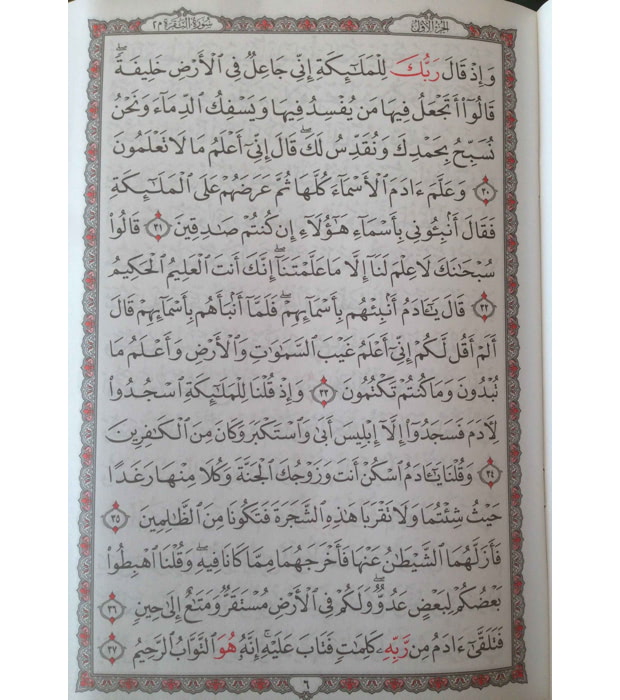 الجزء الأول سورة البقرة ٢
وَإِذْ قَالَ رَبُّكَ لِلْمَلَـٰٓئِكَةِ إِنِّي جَاعِلٌ فِي الْأَرْضِ خَلِيفَةً ۖ
قَالُوٓا۟ أَتَجْعَلُ فِيهَا مَن يُفْسِدُ فِيهَا وَيَسْفِكُ الدِّمَآءَ وَنَحْنُ
نُسَبِّحُ بِحَمْدِكَ وَنُقَدِّسُ لَكَ ۖ قَالَ إِنِّيٓ أَعْلَمُ مَا لَا تَعْلَمُونَ
٣٠ وَعَلَّمَ ءَادَمَ الْأَسْمَآءَ كُلَّهَا ثُمَّ عَرَضَهُمْ عَلَى الْمَلَـٰٓئِكَةِ
فَقَالَ أَنۢبِـُٔونِي بِأَسْمَآءِ هَـٰٓؤُلَآءِ إِن كُنتُمْ صَـٰدِقِينَ ٣١ قَالُوا۟
سُبْحَـٰنَكَ لَا عِلْمَ لَنَآ إِلَّا مَا عَلَّمْتَنَآ ۖ إِنَّكَ أَنتَ الْعَلِيمُ الْحَكِيمُ
٣٢ قَالَ يَـٰٓـَٔادَمُ أَنۢبِئْهُم بِأَسْمَآئِهِمْ ۖ فَلَمَّآ أَنۢبَأَهُم بِأَسْمَآئِهِمْ قَالَ
أَلَمْ أَقُل لَّكُمْ إِنِّيٓ أَعْلَمُ غَيْبَ السَّمَـٰوَٰتِ وَالْأَرْضِ وَأَعْلَمُ مَا
تُبْدُونَ وَمَا كُنتُمْ تَكْتُمُونَ ٣٣ وَإِذْ قُلْنَا لِلْمَلَـٰٓئِكَةِ اسْجُدُوا۟
لِـَٔادَمَ فَسَجَدُوٓا۟ إِلَّآ إِبْلِيسَ أَبَىٰ وَاسْتَكْبَرَ وَكَانَ مِنَ الْكَـٰفِرِينَ
٣٤ وَقُلْنَا يَـٰٓـَٔادَمُ اسْكُنْ أَنتَ وَزَوْجُكَ الْجَنَّةَ وَكُلَا مِنْهَا رَغَدًا
حَيْثُ شِئْتُمَا وَلَا تَقْرَبَا هَـٰذِهِ الشَّجَرَةَ فَتَكُونَا مِنَ الظَّـٰلِمِينَ ٣٥
فَأَزَلَّهُمَا الشَّيْطَـٰنُ عَنْهَا فَأَخْرَجَهُمَا مِمَّا كَانَا فِيهِ ۖ وَقُلْنَا اهْبِطُوا۟
بَعْضُكُمْ لِبَعْضٍ عَدُوٌّ ۖ وَلَكُمْ فِي الْأَرْضِ مُسْتَقَرٌّ وَمَتَـٰعٌ إِلَىٰ حِينٍ ٣٦
فَتَلَقَّىٰٓ ءَادَمُ مِن رَّبِّهِۦ كَلِمَـٰتٍ فَتَابَ عَلَيْهِ ۚ إِنَّهُۥ هُوَ التَّوَّابُ الرَّحِيمُ ٣٧
٦